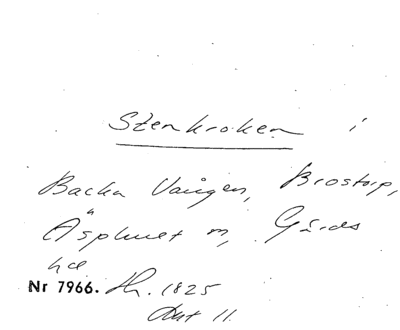 Stenkroken i
Backa Vången, Brostorp,
Äsphult m, Gärds
hd
Nr 7966. Hr. 1825
Akt 11